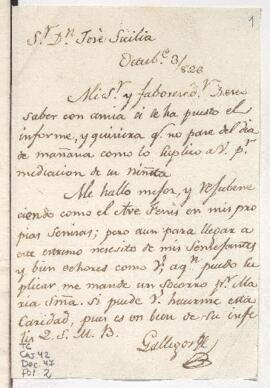 1
Sr. Dn. Josè Sicilia
Octube. 3/826
Mi Sr. y faborecedr. Deseo
saber con ancia si se ha puesto el
informe, y quisiera qe. no pase del dia
de mañana como lo suplico a V. pr.
mediacion de su niñita
Me hallo mejor, y rejubene
ciendo como el Ave Fenis en mis pro
pias senisas; pero aun para llegar a
este estremo necesito de mis
y bien echores como V; a qn. puedo su
plicar me mande un socorro pr. Ma
ria Sma. si puede V. hacerme esta
Caridad, pues es en bien de su infe
liz Q. S. M. B.
Gallegos
Caj 42
Doc. 47
Fol. 2